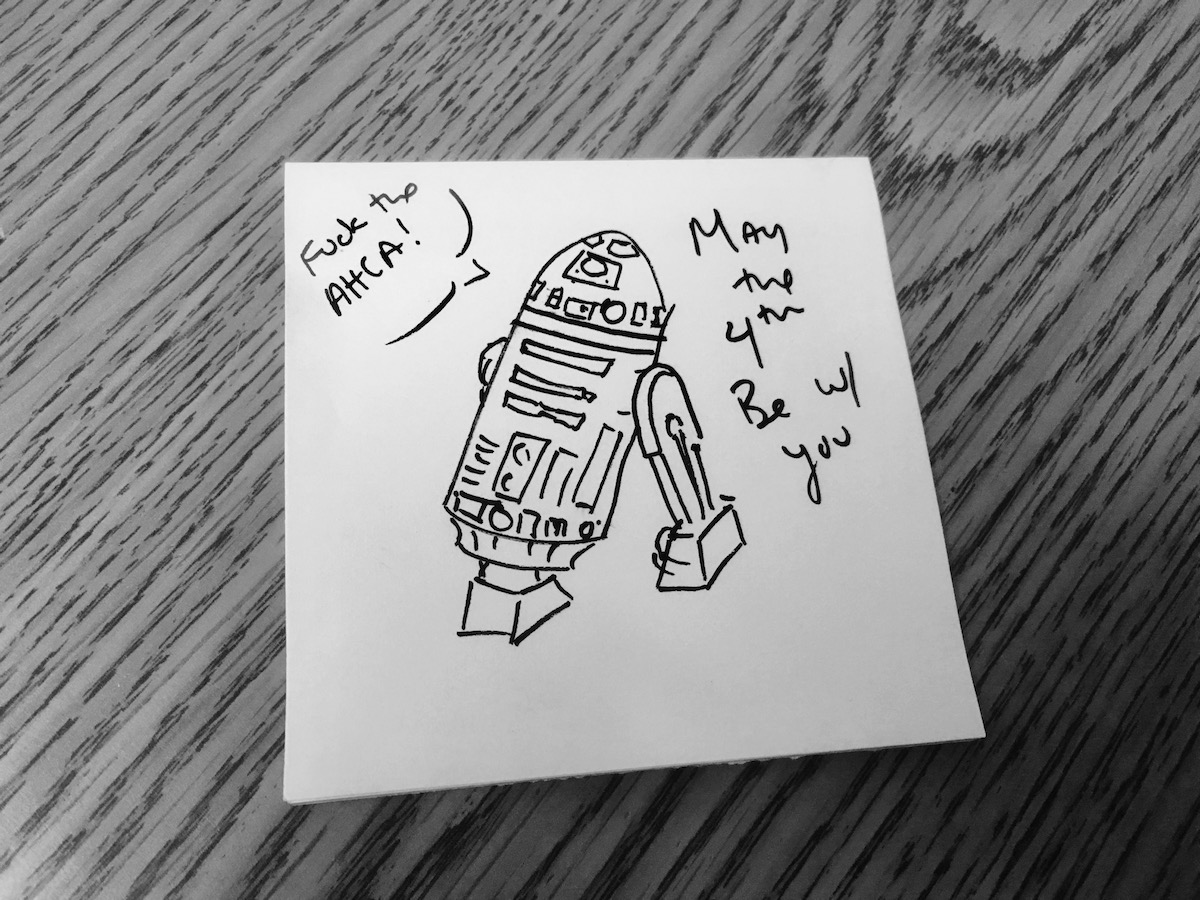 Fuck the
AHCA!
May
the
4th
Be w/
you